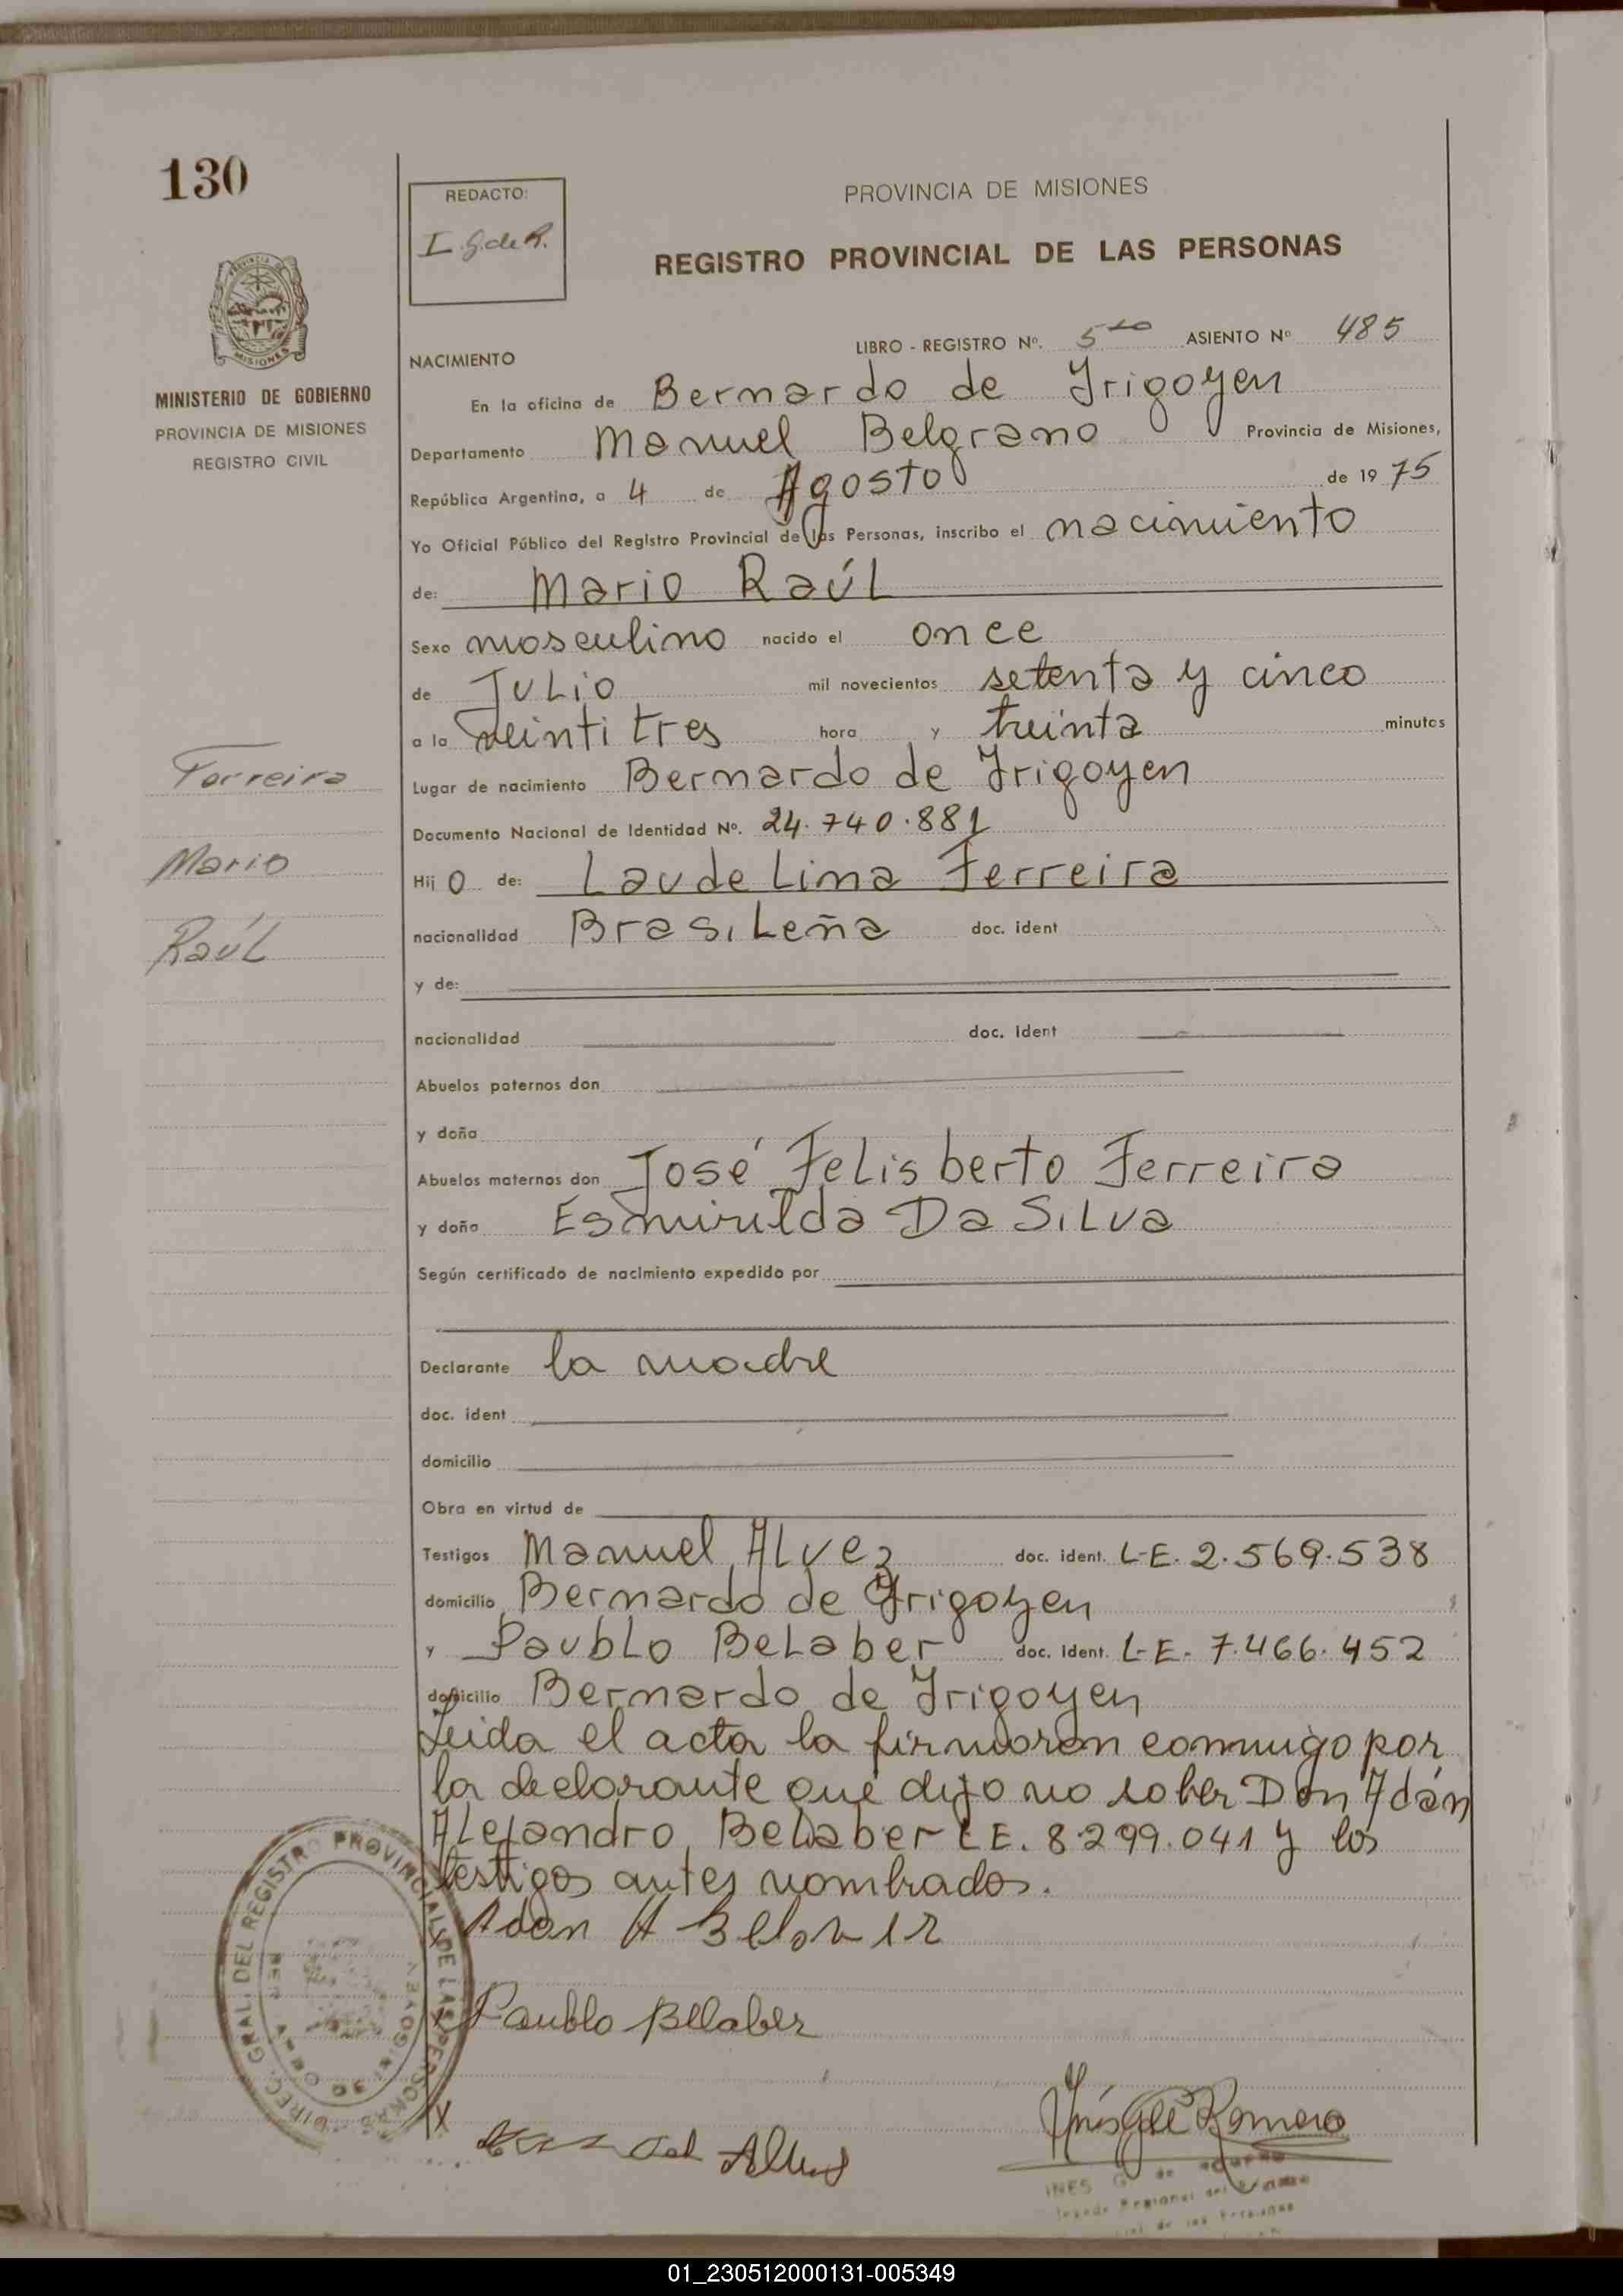 130
REDACTO:
I.G.de R.
PROVINCIA DE MISIONES
REGISTRO PROVINCIAL DE LAS PERSONAS
PROVINCIA DE
MISIONES
MINISTERIO DE GOBIERNO
PROVINCIA DE MISIONES
REGISTRO CIVIL
NACIMIENTO
LIBRO - REGISTRO Nº. 5to ASIENTO Nº 485
En la oficina de Bernardo de Irigoyen
Departamento Manuel Belgrano Provincia de Misiones,
República Argentina, a 4 de Agosto de 1975
Yo Oficial Público del Registro Provincial de las Personas, inscribo el nacimiento
de: Mario Raúl
Sexo masculino nacido el once
de Julio mil novecientos setenta y cinco
a la veintitres hora y treinta minutos
Ferreira
Lugar de nacimiento Bernardo de Irigoyen
Documento Nacional de Identidad Nº. 24.740.881
Mario
Hijo de: Laudelima Ferreira
Raúl
nacionalidad Brasileña doc. ident
y de:
nacionalidad doc. ident
Abuelos paternos don
y doña
Abuelos maternos don José Felisberto Ferreira
y doña Esmirilda Da Silva
Según certificado de nacimiento expedido por
Declarante la madre
doc. ident
domicilio
Obra en virtud de
Testigos Manuel Alvez doc. ident. L-E. 2.569.538
domicilio Bernardo de Irigoyen
y Paublo Belaber doc. ident. L-E. 7.466.452
domicilio Bernardo de Irigoyen
Leida el acta la firmaron conmigo por
la declarante que dijo no saber Don Adán
Alejandro Belaber L E. 8.299.041 y los
testigos antes nombrados.
DIREC. GRAL. DEL REGISTRO PROVINCIAL DE LAS PERSONAS
Adan A
Paublo Belaber
X
Inés G de Romero
INES G. de
01_230512000131-005349